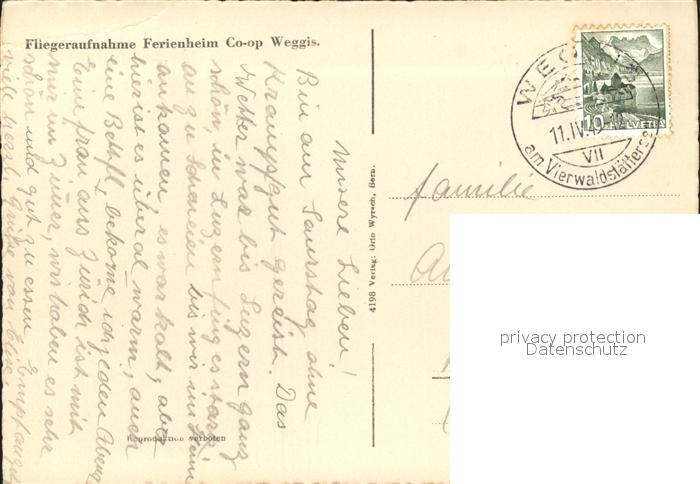 Fliegeraufnahme Ferienheim Co-op Weggis.
Meine Lieben!
Bin am Samstag ohne
Krampf gut gereist. Das
Wetter war bis Luzern ganz
schön, in Luzern fing es stark
an zu schneien bis wir ins Heim
ankamen, es war kalt, aber
hier ist es überal warm, auch
eine Bettfl. bekome ich jeden Abend
Eine frau aus Zürich ist mit
mir im Zimer, wir haben es sehr
schön und gut zu essen Empfangt
viele herzl. Grüße von
Reproduktion verboten
4198 Verlag: Otto Wyrsch, Bern.
familie
WEGGIS
11.IV.
VII
am Vierwaldstättersee
10 HELVETIA
privacy protection
Datenschutz